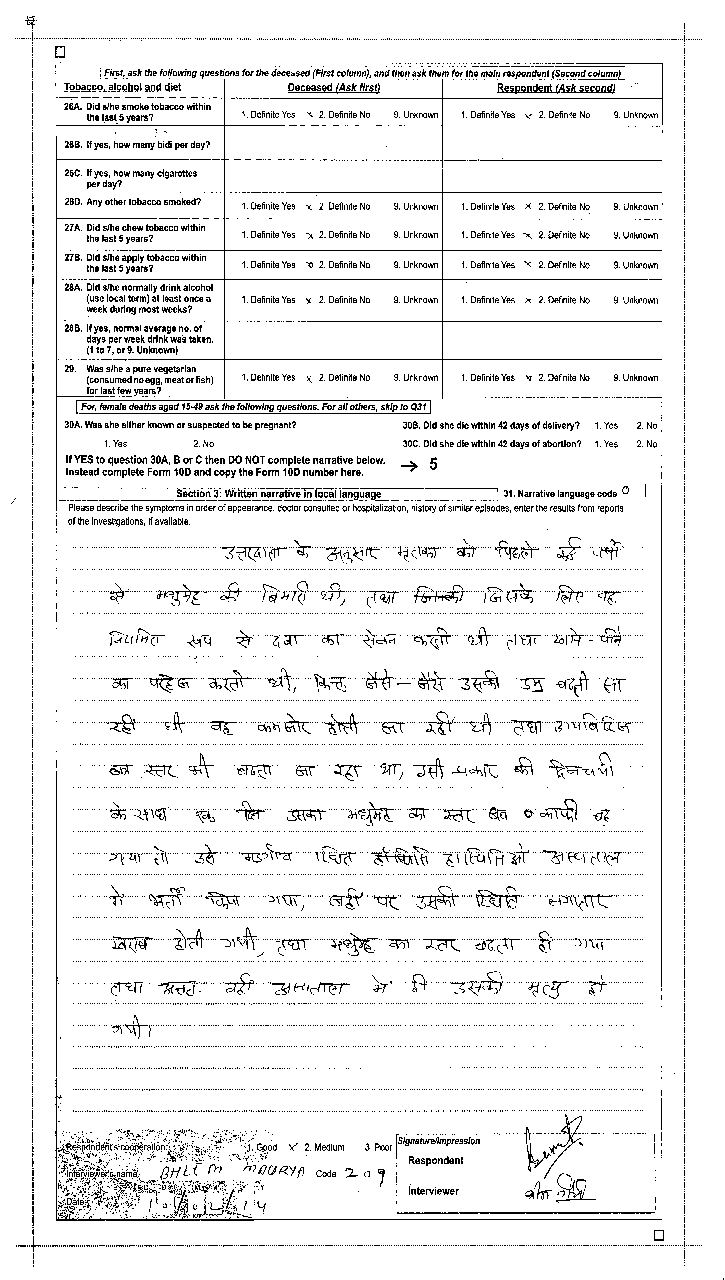 First, ask the following questions for the deceased (First column), and then ask them for the main respondent (Second column)
Tobacco, alcohol and diet Deceased (Ask first) Respondent (Ask second)
26A. Did s/he smoke tobacco within the last 5 years? 1. Definite Yes x 2. Definite No 9. Unknown 1. Definite Yes x 2. Definite No 9. Unknown
26B. If yes, how many bidi per day?
26C. If yes, how many cigarottes per day?
26D. Any other tobacco smoked? 1. Definite Yes x 2. Definite No 9. Unknown 1. Definite Yes x 2. Definite No 9. Unknown
27A. Did s/he chew tobacco within the last 5 years? 1. Definite Yes x 2. Definite No 9. Unknown 1. Definite Yes x 2. Definite No 9. Unknown
27B. Did s/he apply tobacco within the last 5 years? 1. Definite Yes x 2. Definite No 9. Unknown 1. Definite Yes x 2. Definite No 9. Unknown
28A. Did s/he normally drink alcohol (use local term) at least once a week during most weeks? 1. Definite Yes x 2. Definite No 9. Unknown 1. Definite Yes x 2. Definite No 9. Unknown
28B. If yes, normal average no. of days per week drink was taken. (1 to 7, or 9. Unknown)
29. Was s/he a pure vegetarian (consumed no egg, meat or fish) for last few years? 1. Definite Yes x 2. Definite No 9. Unknown 1. Definite Yes x 2. Definite No 9. Unknown
For, female deaths aged 15-49 ask the following questions. For all others, skip to Q31
30A. Was she either known or suspected to be pregnant? 30B. Did she die within 42 days of delivery? 1. Yes 2. No
1. Yes 2. No 30C. Did she die within 42 days of abortion? 1. Yes 2. No
If YES to question 30A, B or C then DO NOT complete narrative below.
Instead complete Form 10D and copy the Form 10D number here. → 5
Section 3: Written narrative in local language 31. Narrative language code 0 1
Please describe the symptoms in order of appearance, doctor consulted or hospitalization, history of similar episodes, enter the results from reports
of the investigations, if available.
उत्तरदाता के अनुसार मृतका को पिछले कई वर्षो
से मधुमेह की बिमारी थी, तथा जिसके लिए वह
नियमित रूप से दवा का सेवन करती थी तथा खाने-पीने
का परहेज करती थी, किन्तु जैसे-जैसे उसकी उम्र बढ़ती जा
रही थी वह कमजोर होती जा रही थी तथा
स्तर भी बढता जा रहा था, इसी प्रकार की दिनचर्या
के साथ एक दिन उसका मधुमेह का स्तर काफी बढ़
गया तो उसे स्थित अस्पताल
मे भर्ती किया गया, जहाँ पर उसकी स्थिति लगातार
खराब होती गयी, तथा मधुमेह का स्तर बढता ही गया
तथा अन्तत. वही अस्पताल मे ही उसकी मृत्यु हो
गयी।
Respondent's cooperation: 1. Good x 2. Medium 3. Poor Signature/Impression
Respondent
Interviewer's name BHEEM MAURYA Code 209
Interviewer
Date: